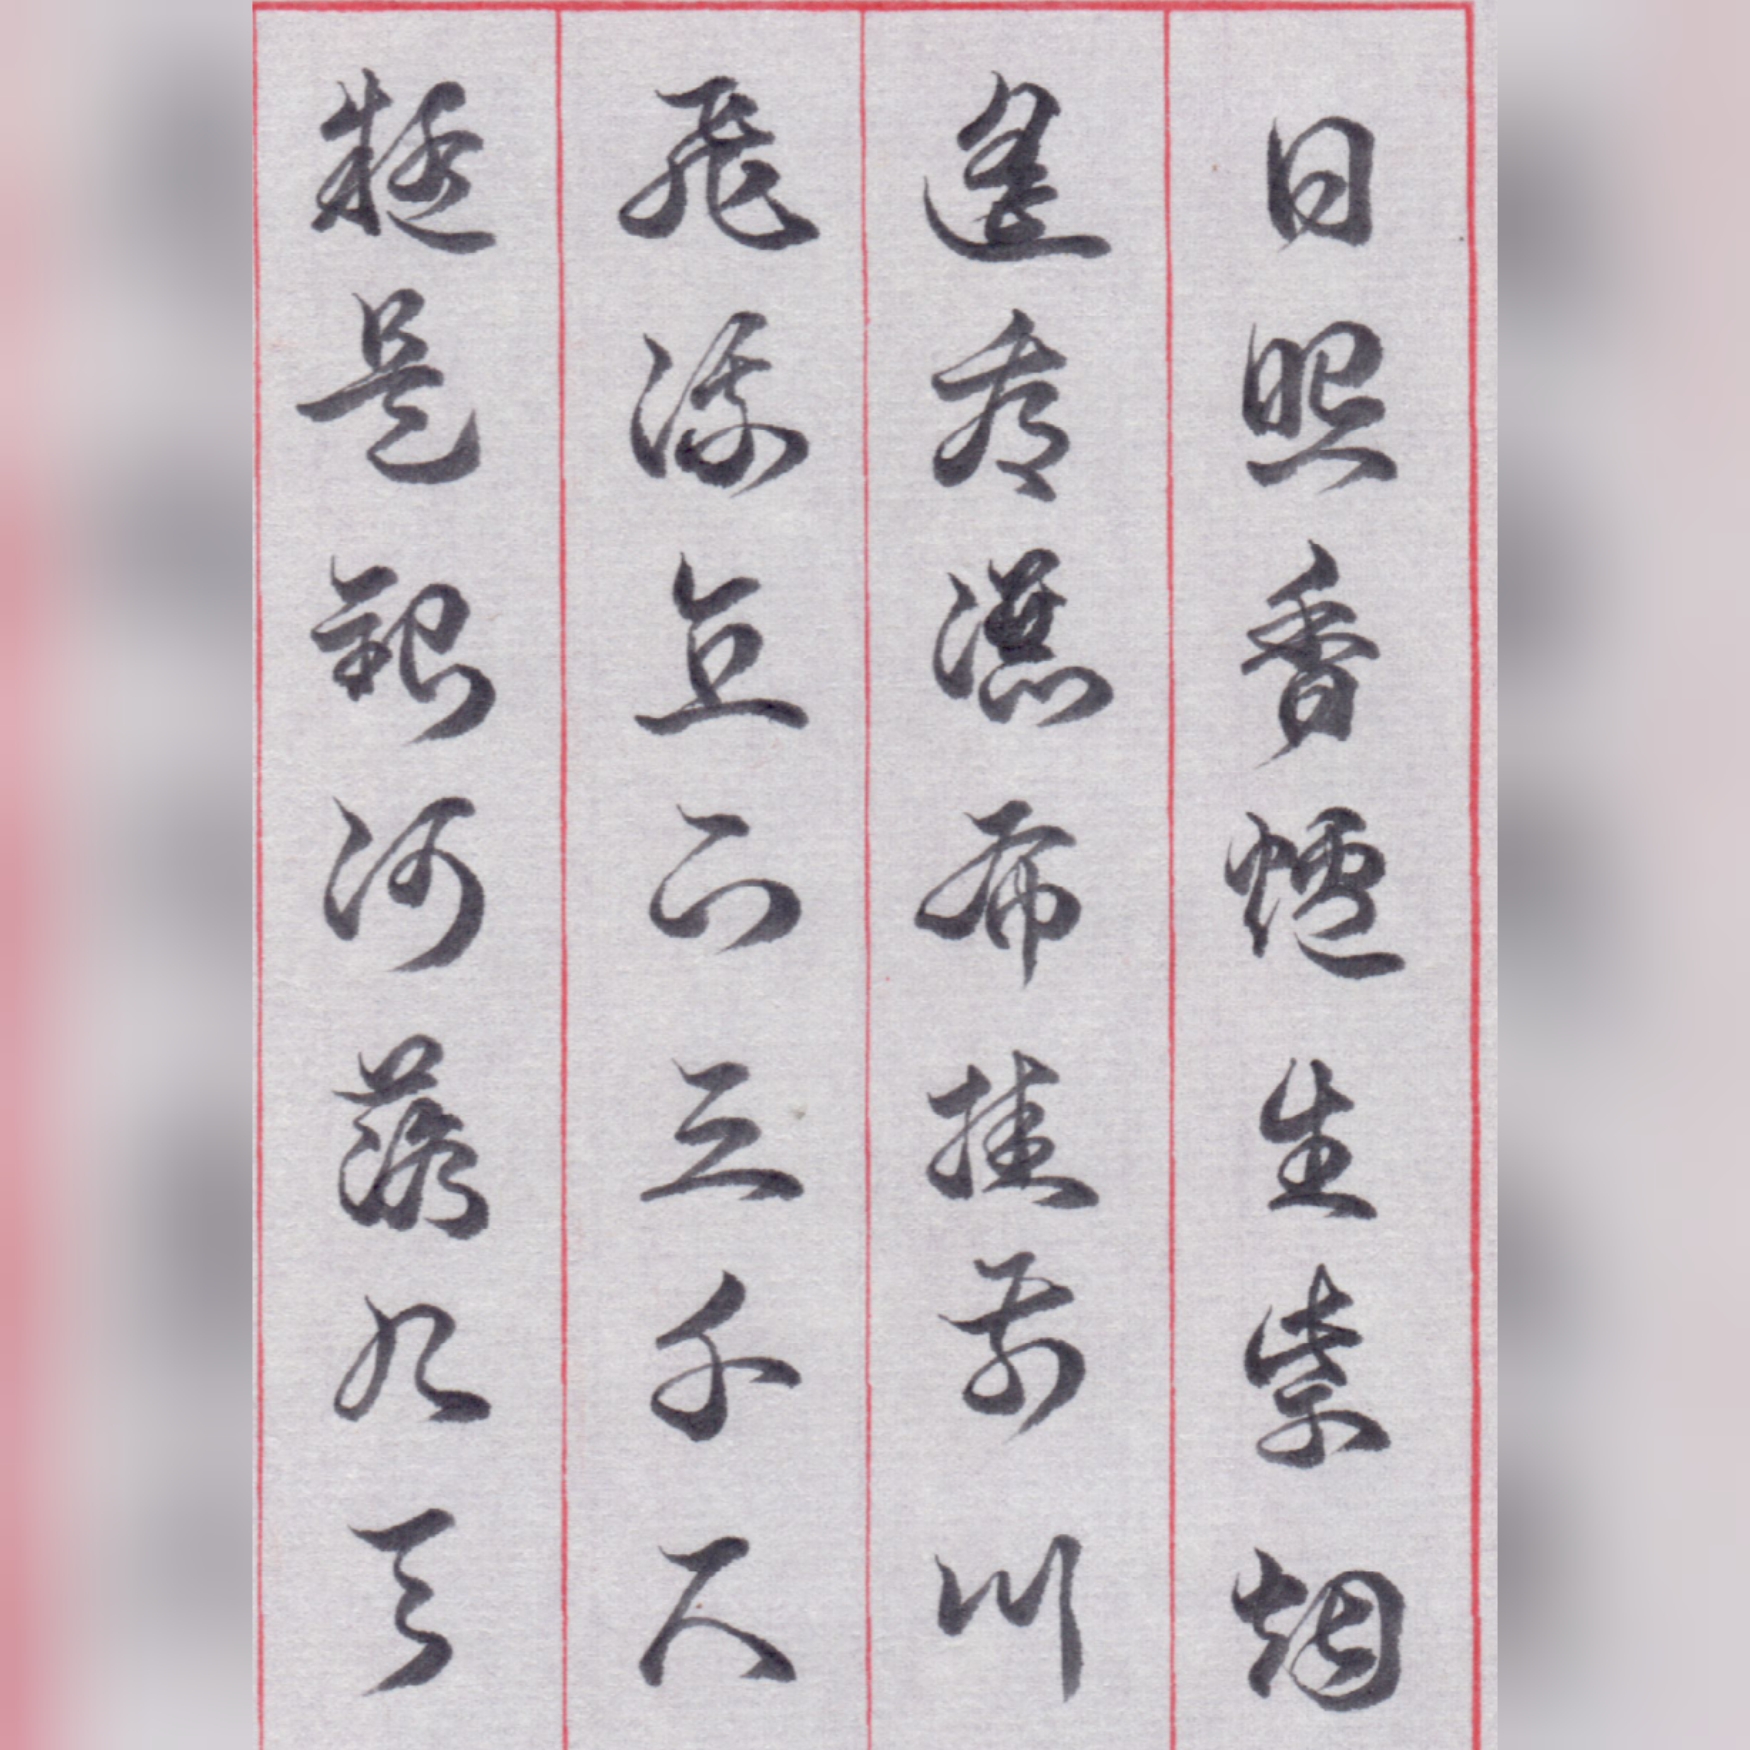 日照香爐生紫烟
遙看瀑布挂前川
飛流直下三千尺
疑是銀河落九天